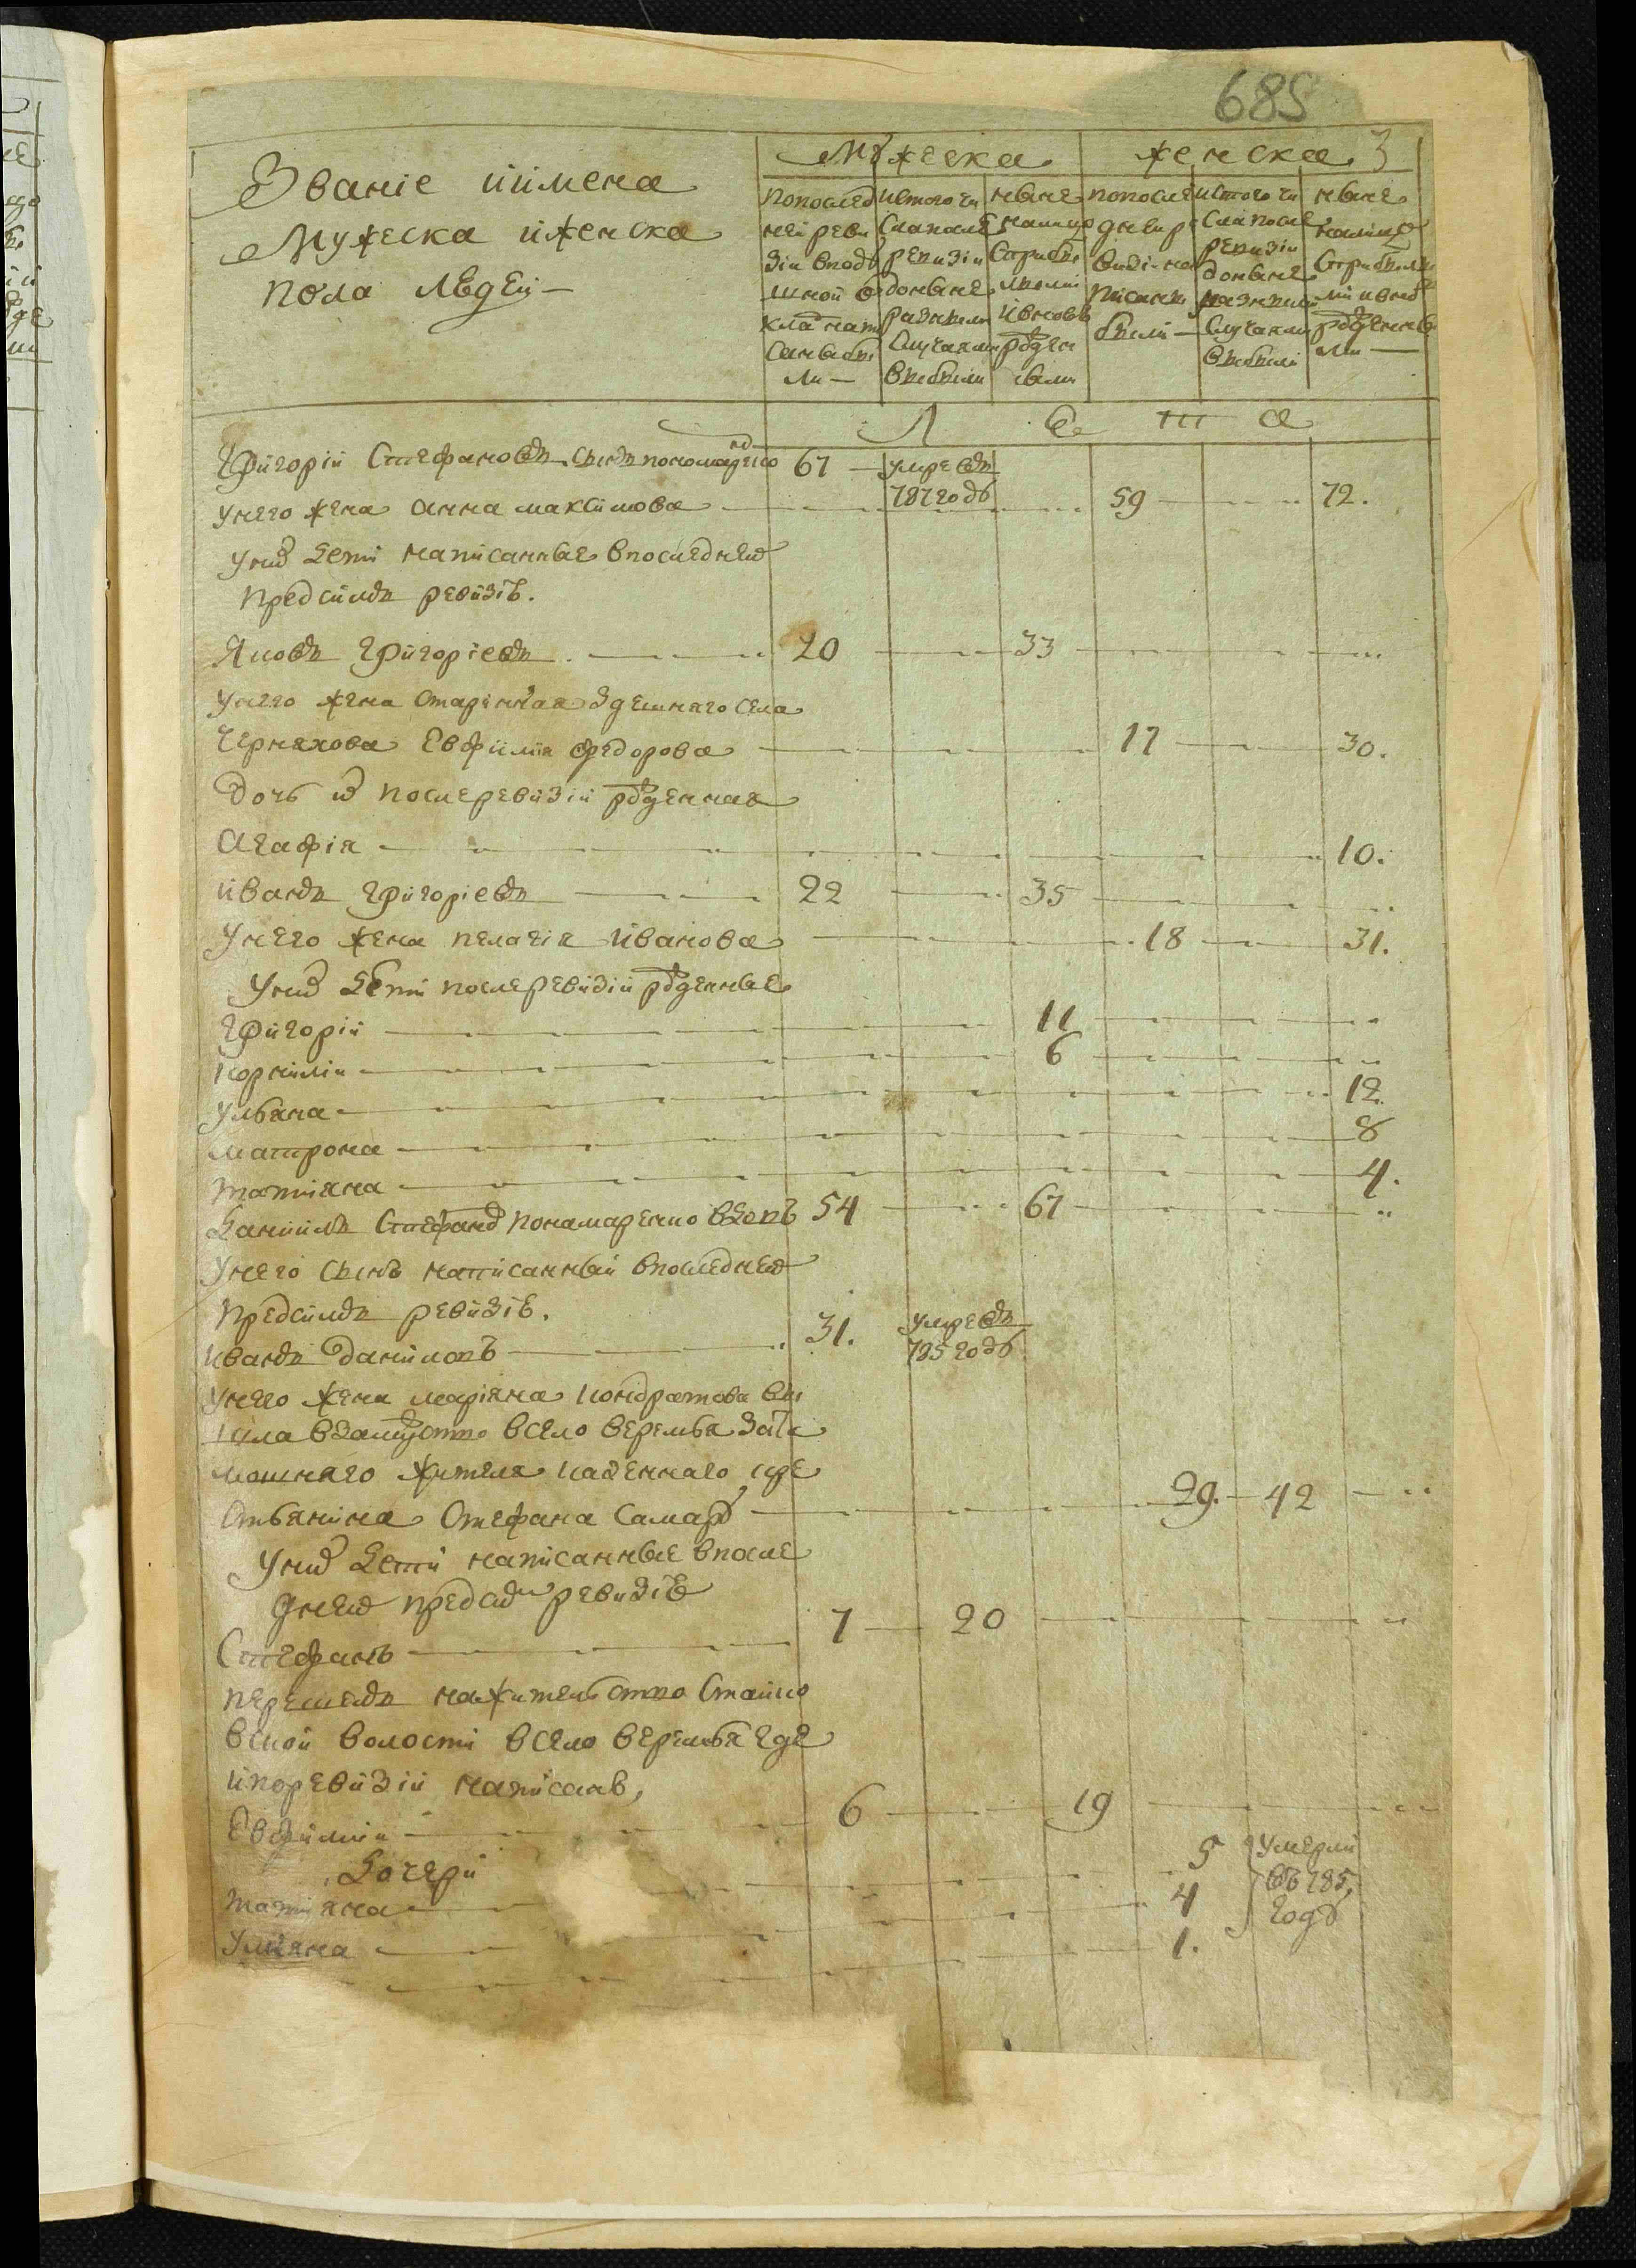 685
3
Званіе иимена
Мужеска иженска
пола людей —
Мужеска
женска
попослед
ней реви
зіи впод
шной о
кла напи
саны бы
ли —
истого чи
сла после
ревизіи
доныне
разными
случаями
выбыли
ныне
налицо
сприбы
лыми
ивновь
рожден
ными
попосле
дней ре
визіи на
писаны
были —
истого чи
сла после
ревизіи
доныне
разными
случаями
выбыли
ныне
налицо
сприбылы
ми ивновь
рожденны
ми —
Л е т а
Григорій Стефановъ сынъ пономаренко 67 — умре въ
787 годѣ
унего жена анна максимова — 59 — 72.
уних дети написанные впоследней
предсимъ ревизіѣ.
Яковъ Григоріевъ — 20 — 33
унего жена старинная здешняго села
Черняхова Евфимія федорова — 17 — 30.
дочь их послеревизіи рожденная
Агафія — 10.
иванъ Григоріевъ — 22 — 35
унего жена пелагія иванова — 18 — 31.
уних дети послеревизіи рожденные
Григорій — 11
корнилій — 6
ульяна — 12.
матрона — 8
татіяна — 4.
Даніилъ Стефанов пономаренко вдовъ 54 — 67
унего сынъ написанный впоследней
предсимъ ревизіѣ.
иванъ даниловъ — 31. умре въ
785 годѣ
унего жена маріяна кондратова вы
шла взамужство всело веремья затам
мошняго жителя казенного кре
стьянина стефана самар — 29. — 42
уних дети написанные впосле
дней предсим ревизіѣ
Стефанъ — 7 — 20
перешелъ нажительство стайко
вской волости всело веремья где
ипоревизіи написанъ,
Евфимій — 6 — 19
Дочери 5 умерли
татіяна — 4 въ 785
уліяна — 1. годѣ